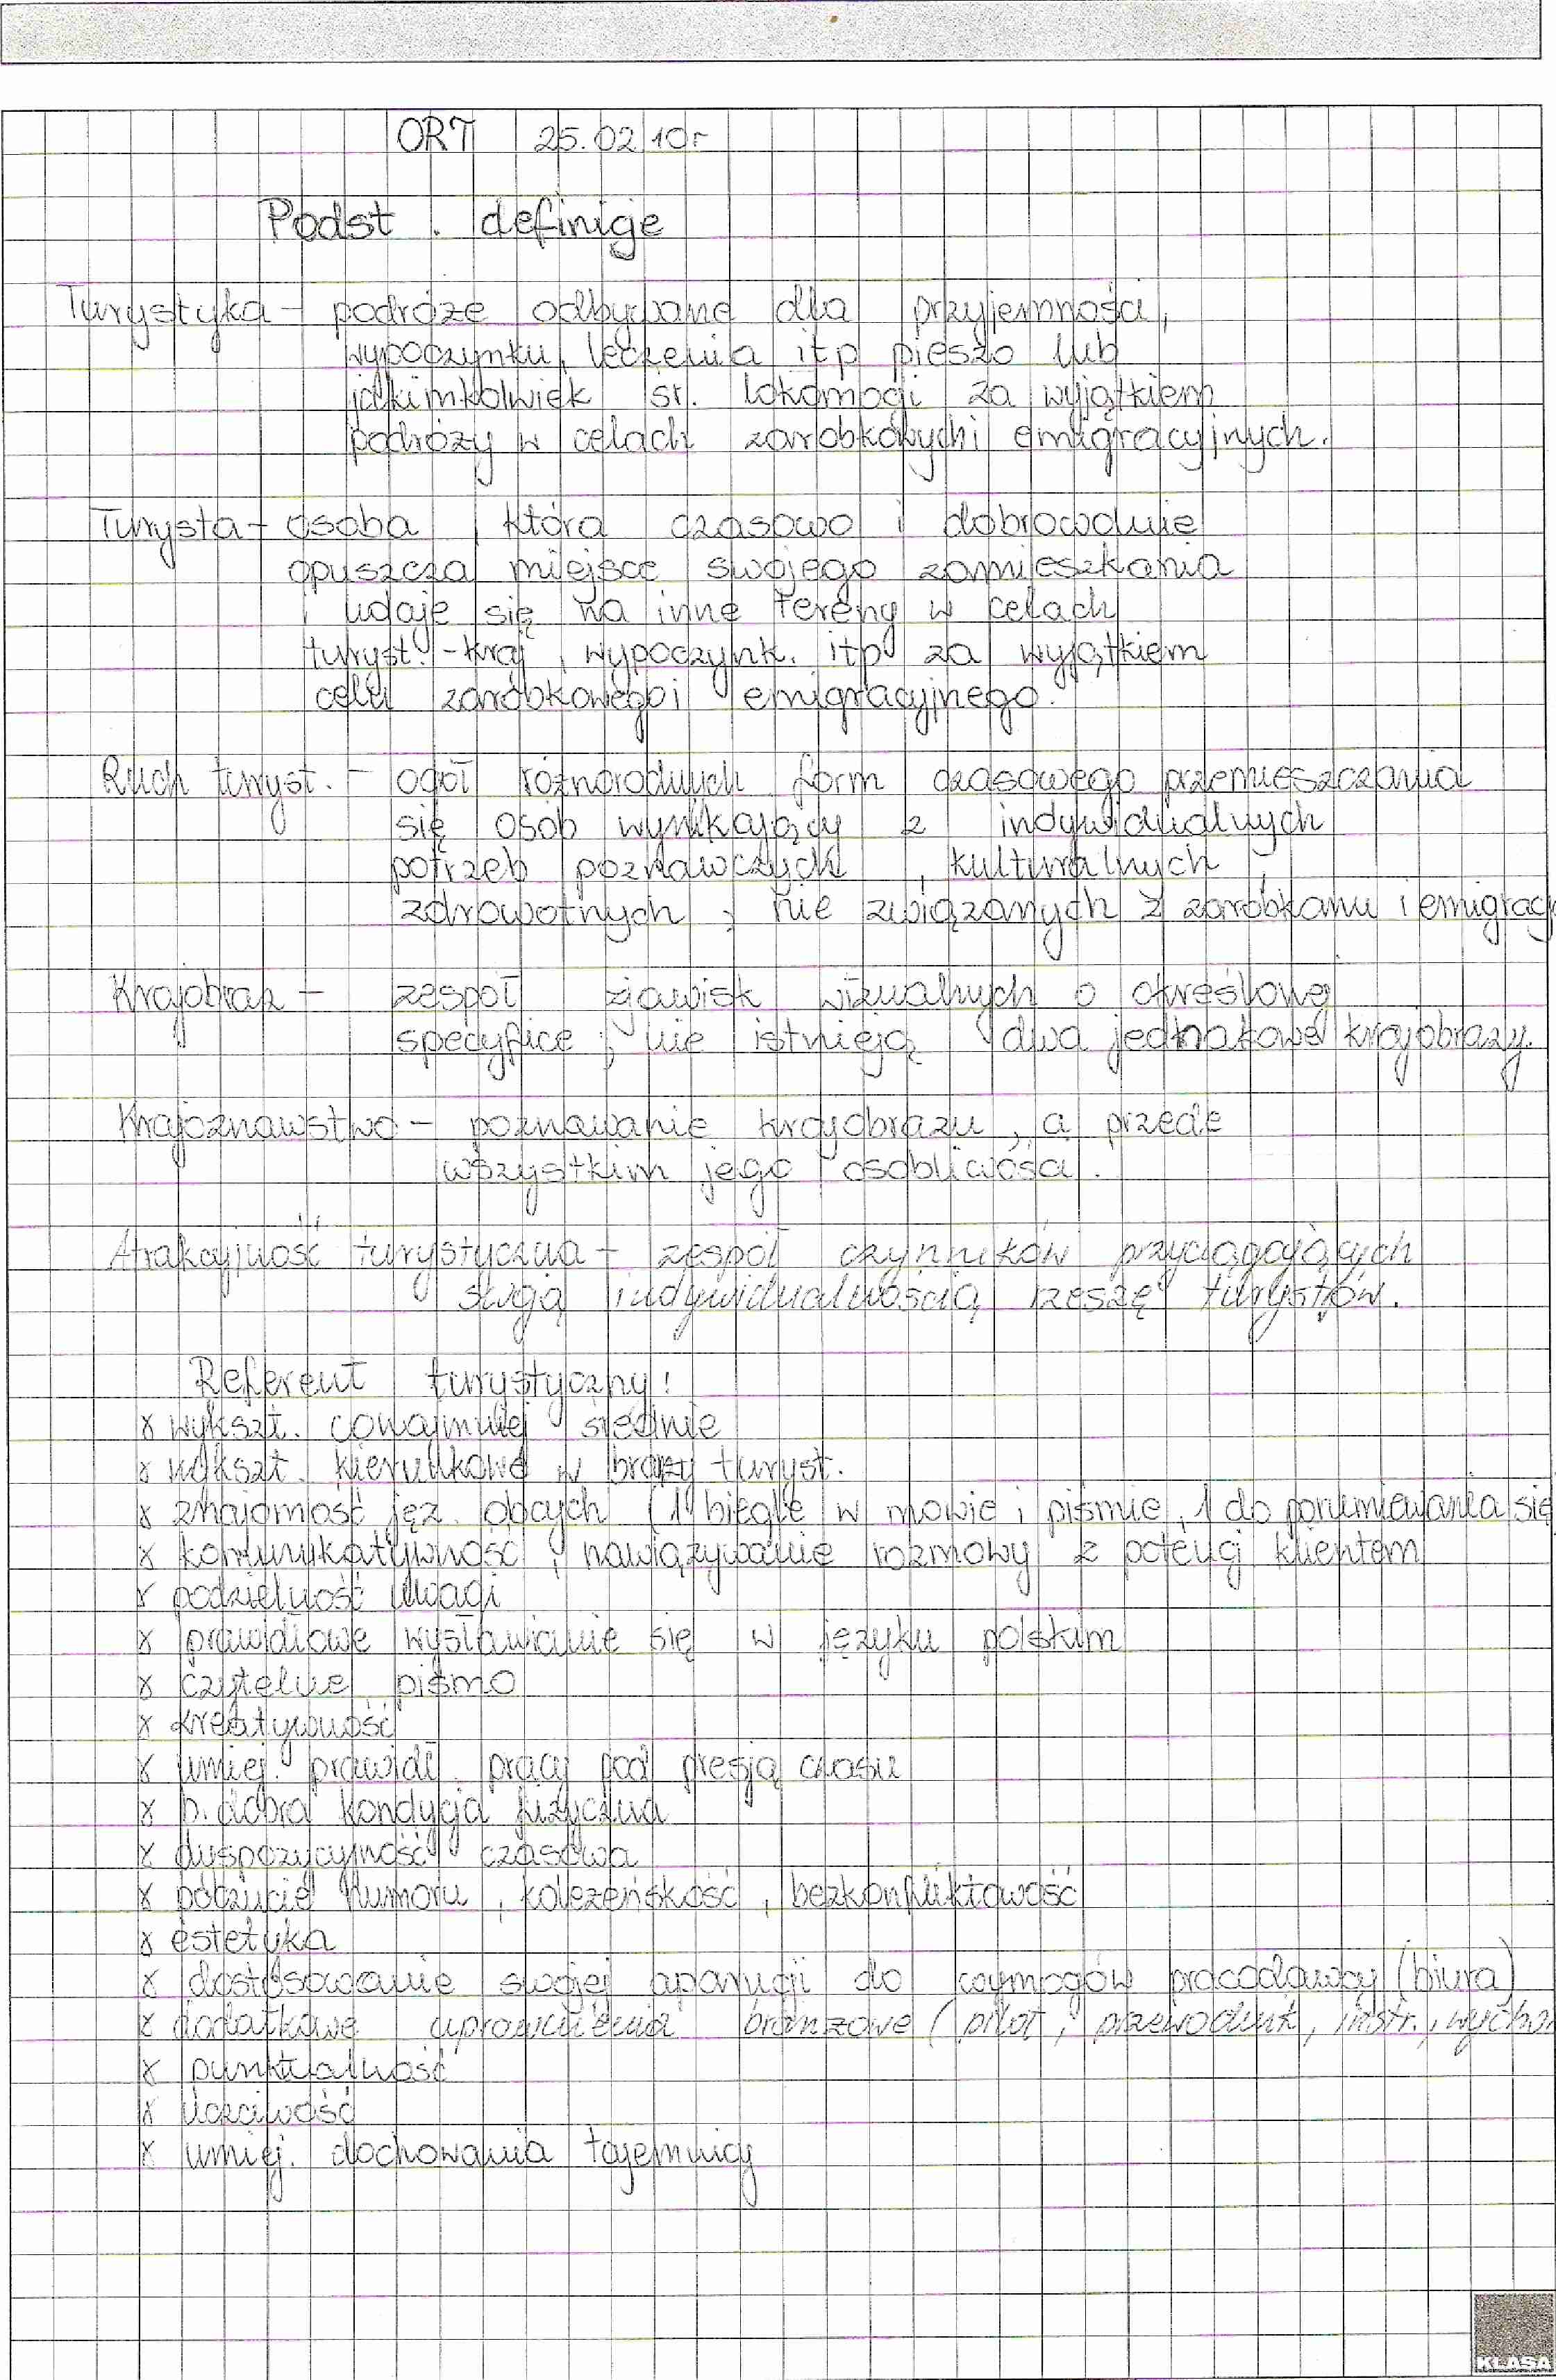 ORT 25.02.10r
Podst. definicje
Turystyka - podróże odbywane dla przyjemności,
wypoczynku, leczenia itp pieszo lub
jakimkolwiek śr. lokomocji za wyjątkiem
podróży w celach zarobkowych i emigracyjnych.
Turysta - osoba, która czasowo i dobrowolnie
opuszcza miejsce swojego zamieszkania
i udaje się na inne tereny w celach
turyst.-kraj, wypoczynk. itp za wyjątkiem
celu zarobkowego i emigracyjnego.
Ruch turyst. - ogół różnorodnych form czasowego przemieszczania
się osób wynikający z indywidualnych
potrzeb poznawczych, kulturalnych,
zdrowotnych, nie związanych z zarobkami i emigracj
Krajobraz - zespół zjawisk wizualnych o określonej
specyfice; nie istnieją dwa jednakowe krajobrazy.
Krajoznawstwo - poznawanie krajobrazu, a przede
wszystkim jego osobliwości.
Atrakcyjność turystyczna - zespół czynników przyciągających
swoją indywidualnością rzeszę turystów.
Referent turystyczny:
x wykszt. conajmniej średnie
x wykszt. kierunkowe w branży turyst.
x znajomość jęz. obcych (1 biegle w mowie i piśmie, 1 do porumiewania się
x komunikatywność, nawiązywanie rozmowy z potencj klientem
x podzielność uwagi
x prawidłowe wysławianie się w języku polskim
x czytelne pismo
x kreatywność
x umiej. prawidł. pracy pod presją czasu
x b. dobra kondycja fizyczna
x dyspozycyjność czasowa
x poczucie humoru, koleżeńskość, bezkonfliktowość
x estetyka
x dostosowanie swojej aparycji do wymogów pracodawcy (biura)
x dodatkowe uprawnienia branżowe (pilot, przewodnik, instr., wycho
x punktualność
x uczciwość
x umiej. dochowania tajemnicy
KLASA